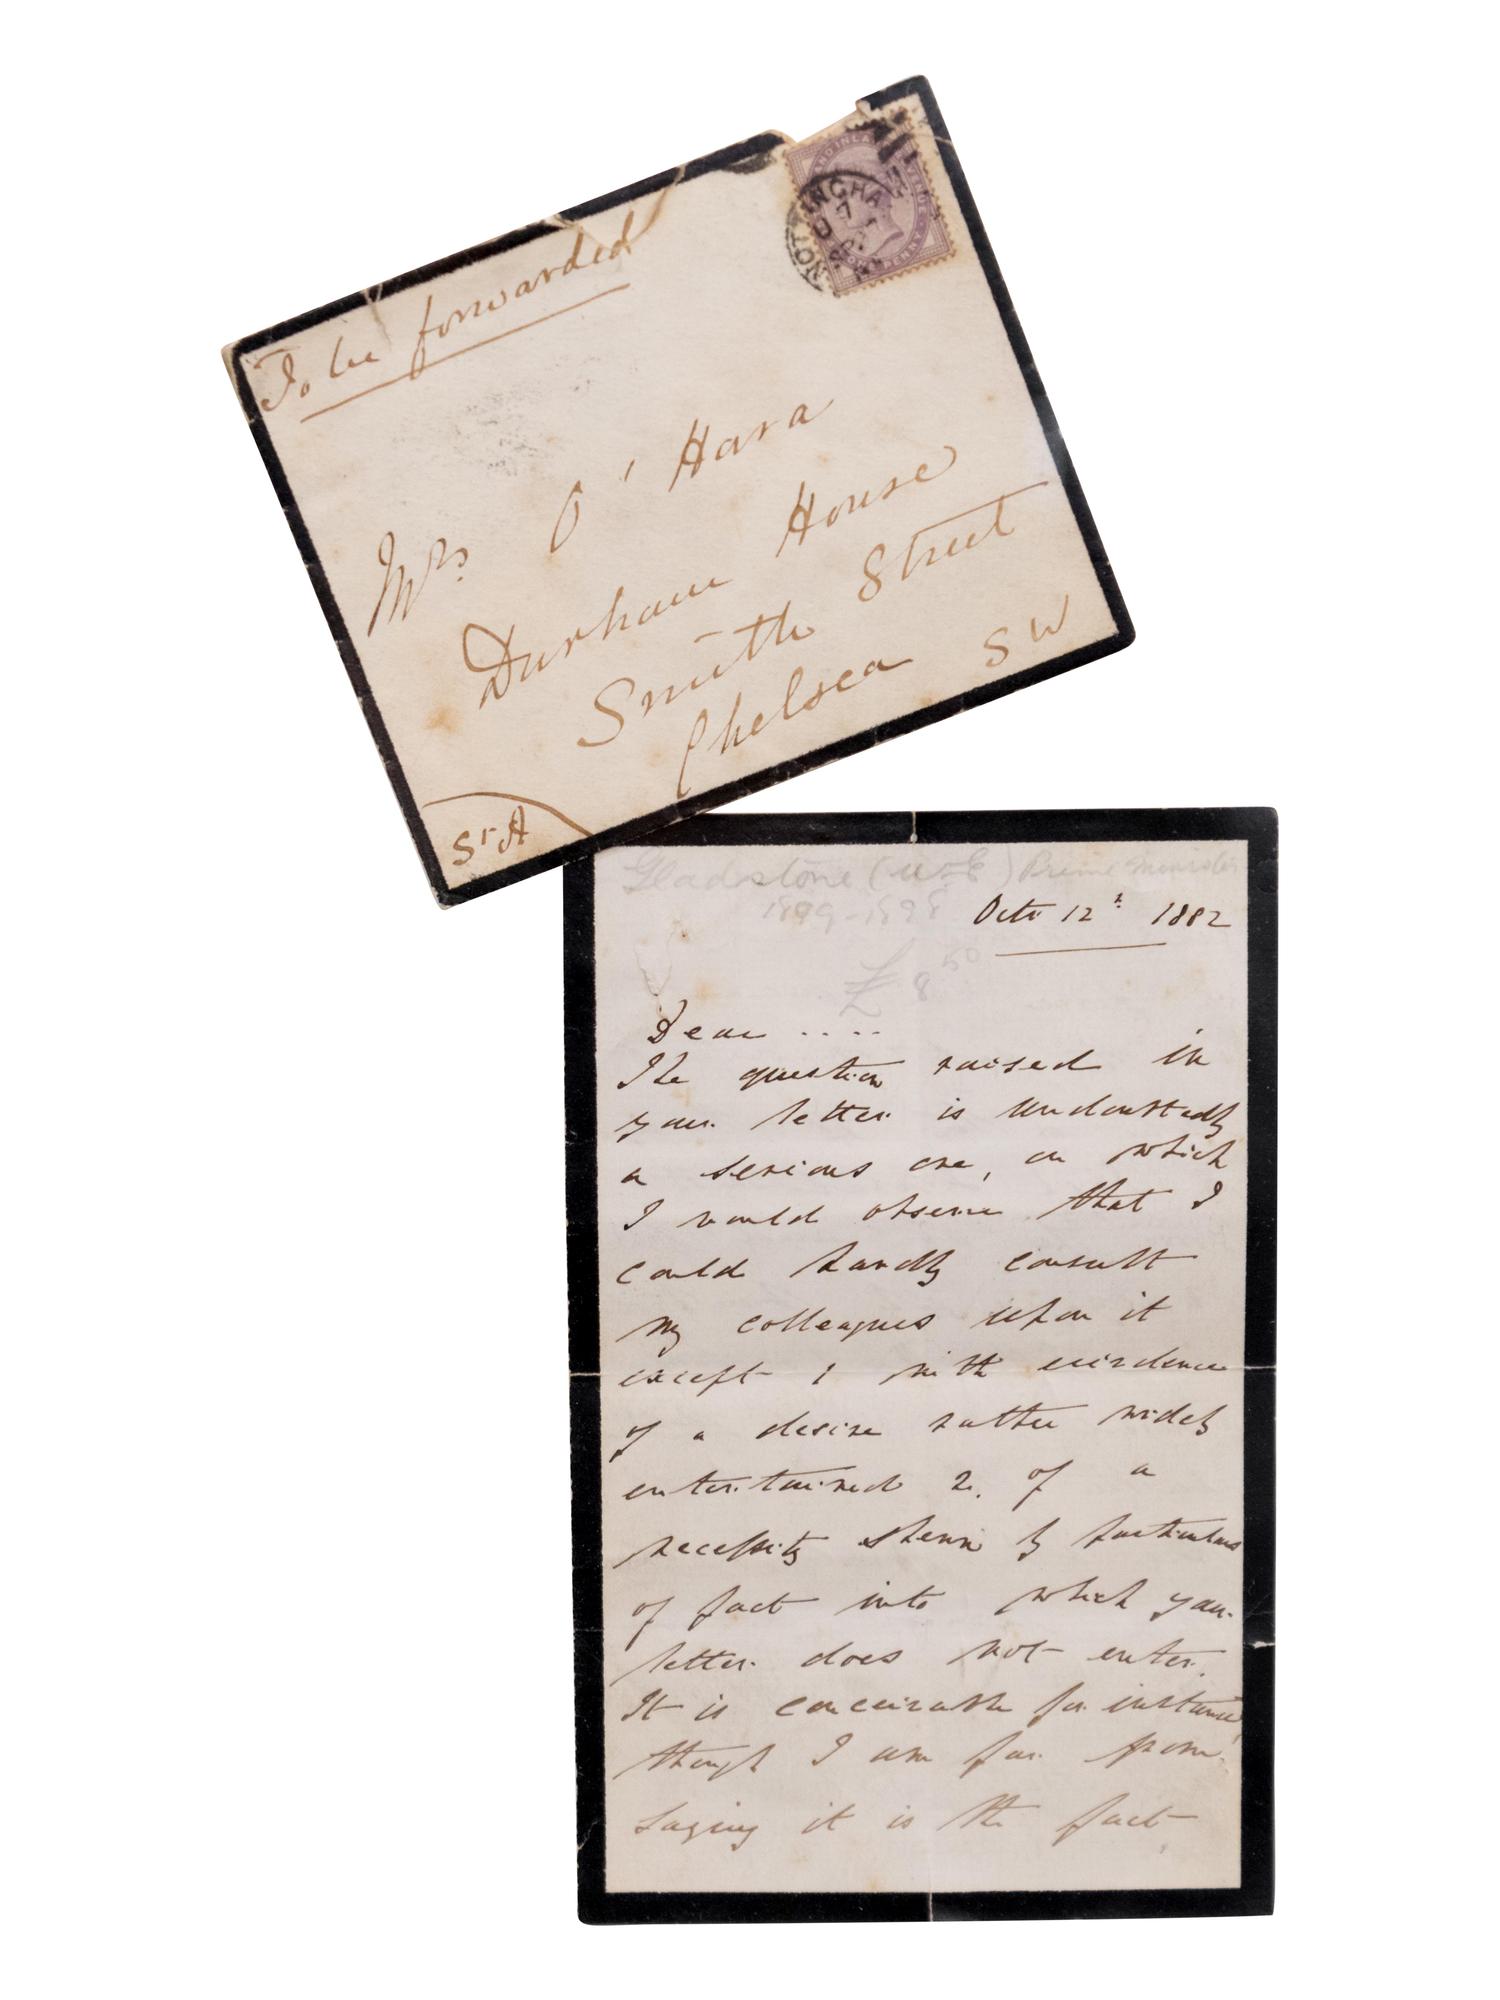 To be forwarded
Mrs O'Hara
Durham House
Smith Street
Chelsea SW
St A
AND INLAND REVENUE
ONE PENNY
NOTTINGHA
Gladstone (W E) Prime Minister
1809-1898
Octr 12 1882
£ 8 50
Dear ....
The question raised in
your letter is undoubtedly
a serious one, on which
I would observe that I
could hardly consult
my colleagues upon it
except 1 with evidence
of a desire rather widely
entertained 2. of a
necessity shewn by particulars
of fact into which your
letter does not enter.
It is conceivable for instance,
though I am far from
saying it is the fact